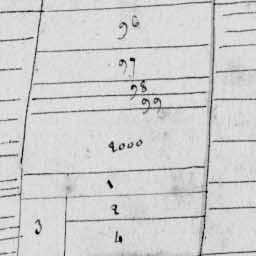 96
97
98
99
2000
1
2
3
4